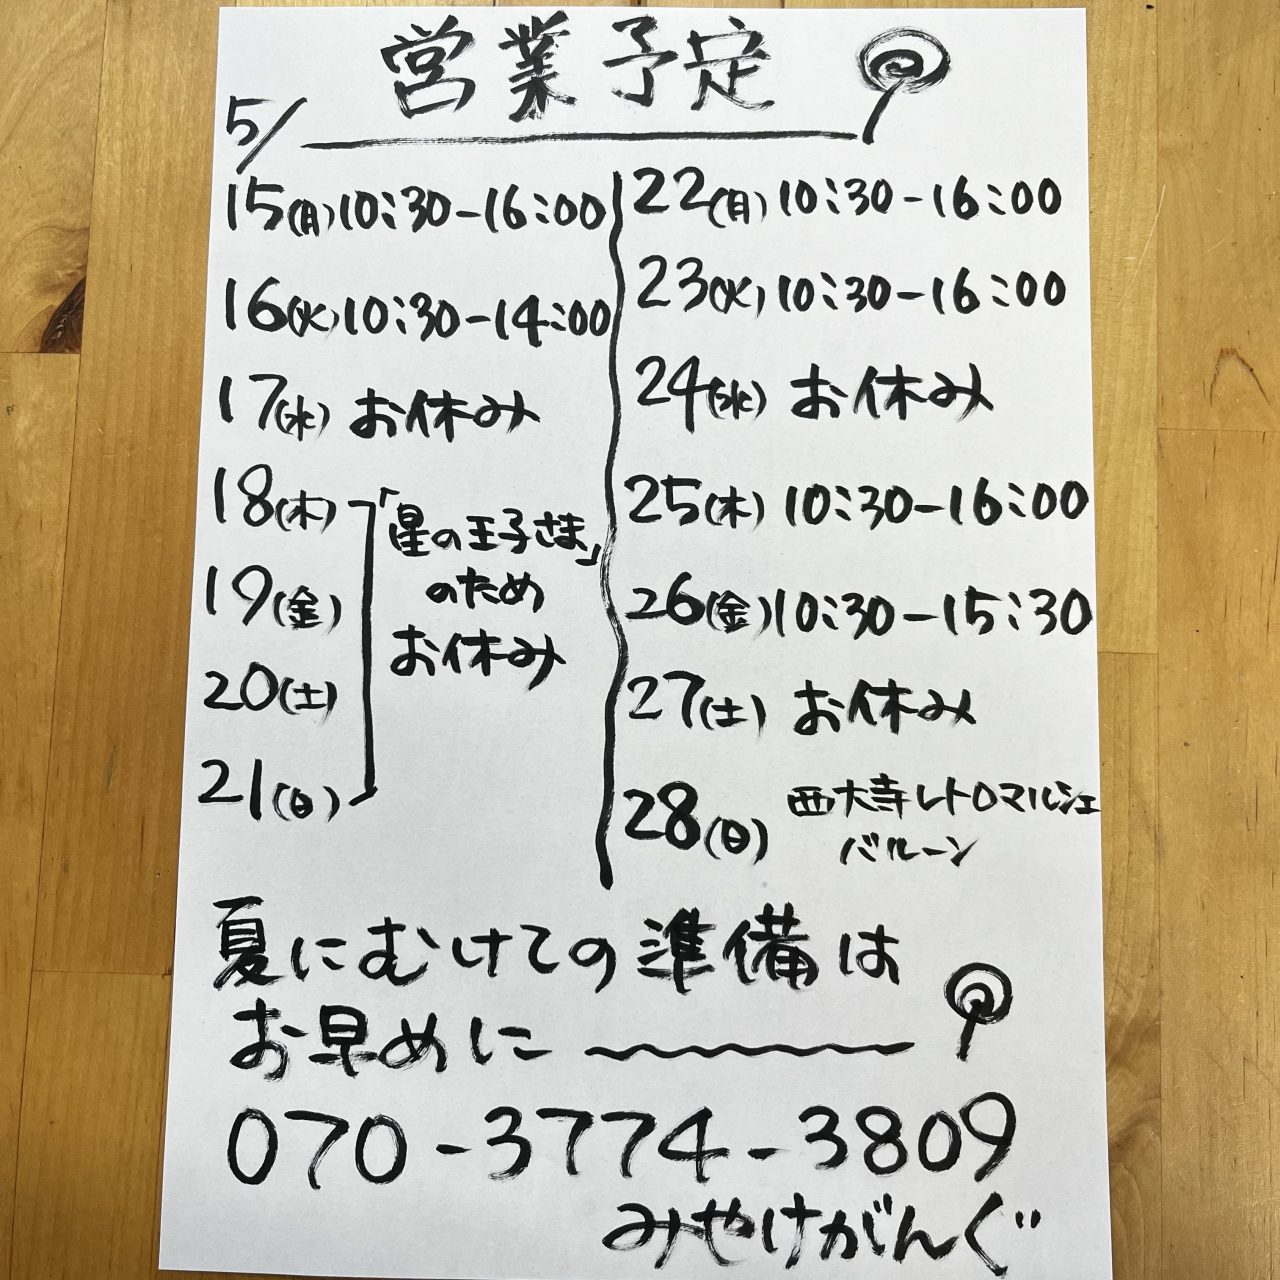 営業予定
5/
15(月)10:30-16:00
16(火)10:30-14:00
17(水) お休み
18(木)
19(金)
20(土)
21(日)
「星の王子さま」
のため
お休み
22(月)10:30-16:00
23(火)10:30-16:00
24(水) お休み
25(木) 10:30-16:00
26(金)10:30-15:30
27(土) お休み
28(日) 西大寺レトロマルシェ
バルーン
夏にむけての準備は
お早めに
070-3774-3809
みやけがんぐ